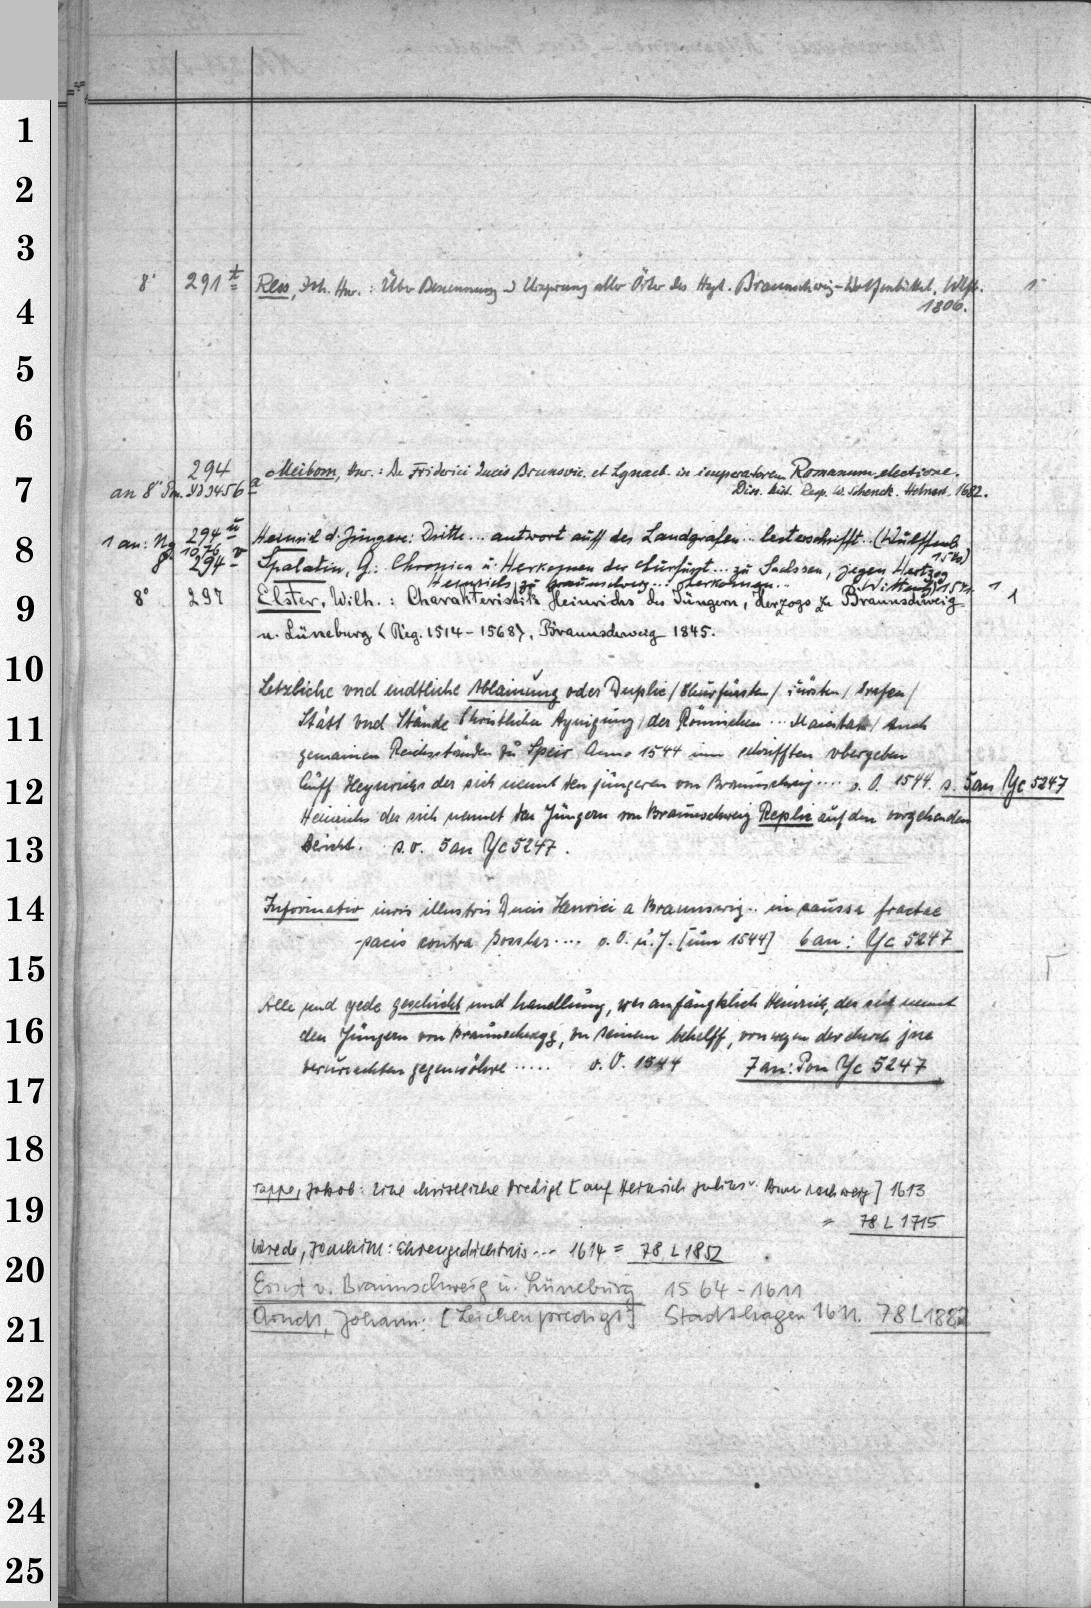 1
2
3
8° 291 t Reis, Joh. Hnr.: Über Benennung u Ursprung aller Örter des Hzgt. Braunschweig-Wolfenbüttel. Wlfb. 1
4
1806.
5
6
294 Meibom, Hnr.: De Friderici Ducis Brunsvic. et Lyneb. in imperatorem Romanum electione.
7
an 8° Pon. Yd 3456 a Diss. hist. Resp. W. Schenck. Helmst. 1682.
1 an: Ng 294 u Heinrich d. Jüngere: Dritte... antwort auff des Landgrafen... lesterschrifft... (Wulffenb.
8
g. 1076 1540)
294 v Spalatin, G.: Chronica u. Herkomen der Churfürst... zu Sachssen, jegen Hertzog
Heinrichs zu Braunschweig... Herkomen... (Wittenb) 1541. 1
9
8° 297 Elster, Wilh.: Charakteristik Heinrichs des Jüngern, Herzogs zu Braunschweig 1
u. Lüneburg <Reg. 1514-1568>, Braunschweig 1845.
10
Letzliche vnd endtliche Ablainung oder Duplic / Churfürsten / Fürsten / Grafen /
11
Stätt vnd Stände Christlicher Aynigung / der Römischen ... Maiestat / auch
gemainen Reichsständen zu Speir Anno 1544 inn schrifften vbergeben
12
Auff Heynrichs der sich nennt den jüngeren von Braunschweig .... o. O. 1544. s. 5 an Yc 5247
Heinrichs der sich nennet den Jüngern von Braunschweig Replic auf den vorgehenden
13
Bericht. s. o. 5 an Yc 5247.
14
Informatio iuris illustris Ducis Henrici a Braunswig.. in caussa fractae
pacis contra Goslar.... o. O. u. J. [um 1544] 6 an: Yc 5247
15
Alle und yede geschicht und handlung, wes anfängklich Heinrich, der sich nennt
16
den Jüngern von Braunschwygg, zu seinem behelff, von wegen der durch jne
verursachten gegenwöhre ..... o. O. 1544 7 an: Pon Yc 5247
17
18
Tappe, Jakob: Eine christliche Predigt [auf Heinrich Julius v. Braunschweig] 1613
19
= 78 L 1715
Wrede, Joachim: Ehrengedächtnis... 1614 = 78 L 1852
20
Ernst v. Braunschweig u. Lüneburg 1564-1611
Arndt, Johann: [Leichenpredigt] Stadthagen 1611. 78 L 1882
21
22
23
24
25